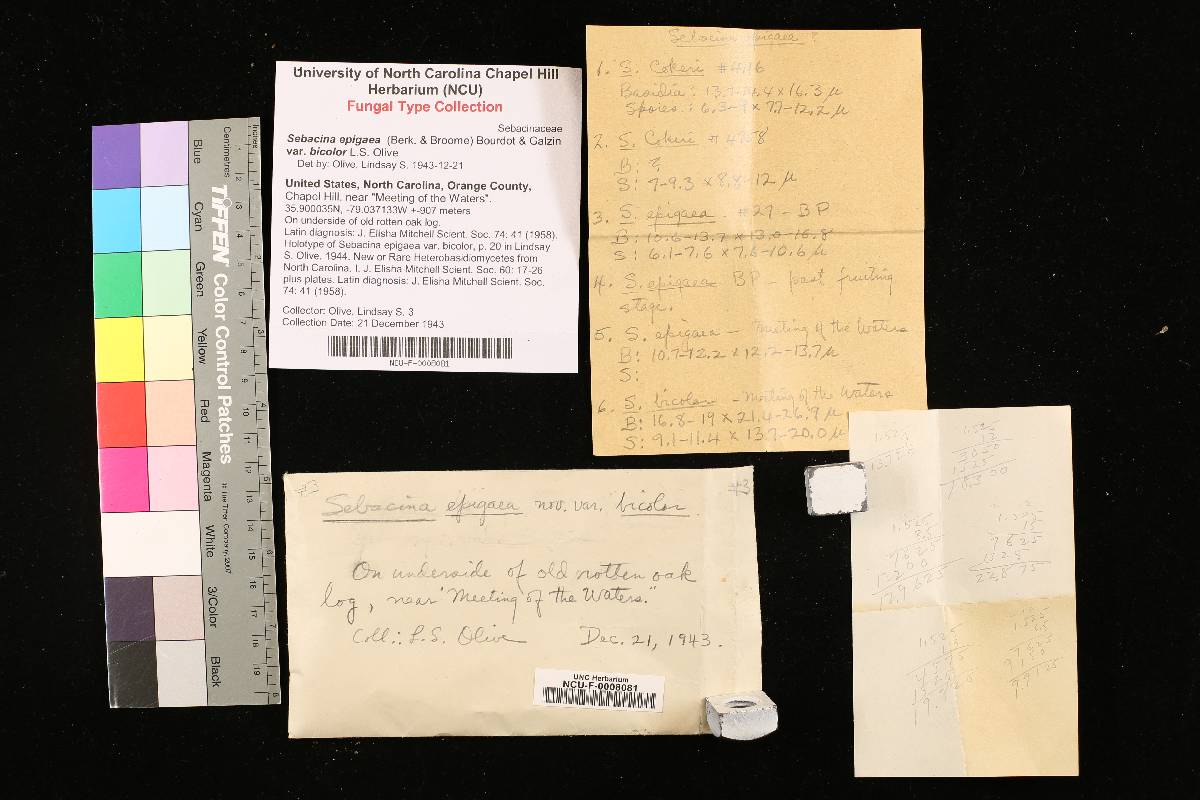 University of North Carolina Chapel Hill
Herbarium (NCU)
Fungal Type Collection
Sebacinaceae
Sebacina epigaea (Berk. & Broome) Bourdot & Galzin
var. bicolor L.S. Olive
Det by: Olive, Lindsay S. 1943-12-21
United States, North Carolina, Orange County,
Chapel Hill, near "Meeting of the Waters".
35.900035N, -79.037133W +-907 meters
On underside of old rotten oak log.
Latin diagnosis: J. Elisha Mitchell Scient. Soc. 74: 41 (1958).
Holotype of Sebacina epigaea var. bicolor, p. 20 in Lindsay
S. Olive. 1944. New or Rare Heterobasidiomycetes from
North Carolina. I. J. Elisha Mitchell Scient. Soc. 60: 17-26
plus plates. Latin diagnosis: J. Elisha Mitchell Scient. Soc.
74: 41 (1958).
Collector: Olive, Lindsay S. 3
Collection Date: 21 December 1943
NCU-F-0008081
Sebacina epigaea ?
1. S. Cokeri
Basidia: 16.3 µ
Spores: 6.3-9 x 7.7-12.2 µ
2. S. Cokeri
B: ?
S: 7-9.3 x 8.8-12 µ
3. S. epigaea. #27 - BP
B: 10.6-13.7 x 13.0-16.8
S: 6.1-7.6 x 7.6-10.6 µ
4. S. epigaea BP - past fruiting
stage.
5. S. epigaea - Meeting of the Waters
B: 10.7-12.2 x 12.2-13.7 µ
S:
6. S. bicolor - Meeting of the Waters
B: 16.8-19 x 21.4-26.9 µ
S: 9.1-11.4 x 13.7-20.0 µ
#3
Sebacina epigaea nov. var. bicolor
On underside of old rotten oak
log, near "Meeting of the Waters."
Coll.: L.S. Olive Dec. 21, 1943.
UNC Herbarium
NCU-F-0008081
Inches
Centimetres
TIFFEN® Color Control Patches
© The Tiffen Company, 2007
Blue
Cyan
Green
Yellow
Red
Magenta
White
3/Color
Black
1.525
1.525
1.525
1.525